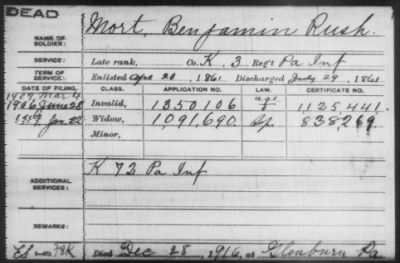 DEAD
NAME OF SOLDIER: Mort, Benjamin Rush.
SERVICE: Late rank, Co. K, 3 Reg't Pa Inf
TERM OF SERVICE: Enlisted Apr 20, 1861 Discharged July 29, 1861
DATE OF FILING. CLASS. APPLICATION NO. LAW. CERTIFICATE NO.
1907 Mar 4 age
1906 June 28 Invalid, 1350106 1,125,441.
1917 Jan. 22 Widow, 1,091,690. Ap. 838,269
Minor,
ADDITIONAL SERVICES: K 72 Pa Inf
REMARKS:
Died Dec 28, 1916, at Glenburn Pa